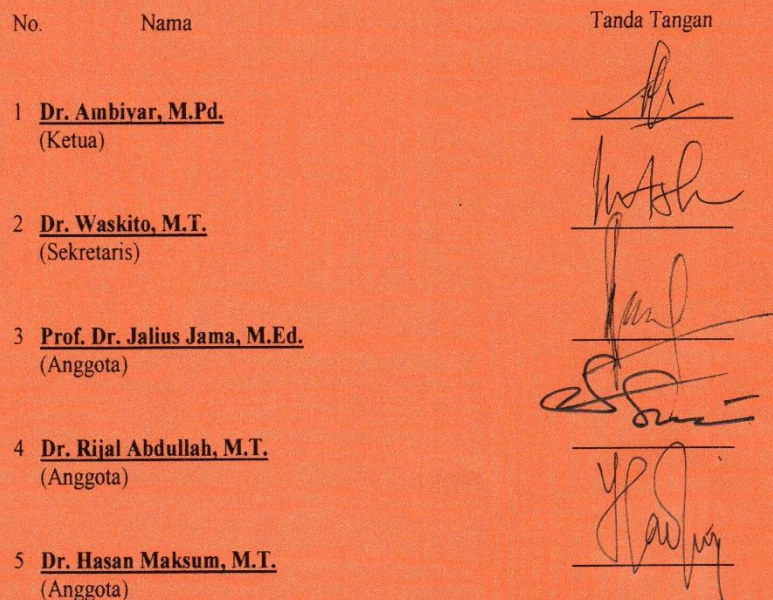 No. Nama Tanda Tangan
1 Dr. Ambiyar, M.Pd.
(Ketua)
2 Dr. Waskito, M.T.
(Sekretaris)
3 Prof. Dr. Jalius Jama, M.Ed.
(Anggota)
4 Dr. Rijal Abdullah, M.T.
(Anggota)
5 Dr. Hasan Maksum, M.T.
(Anggota)